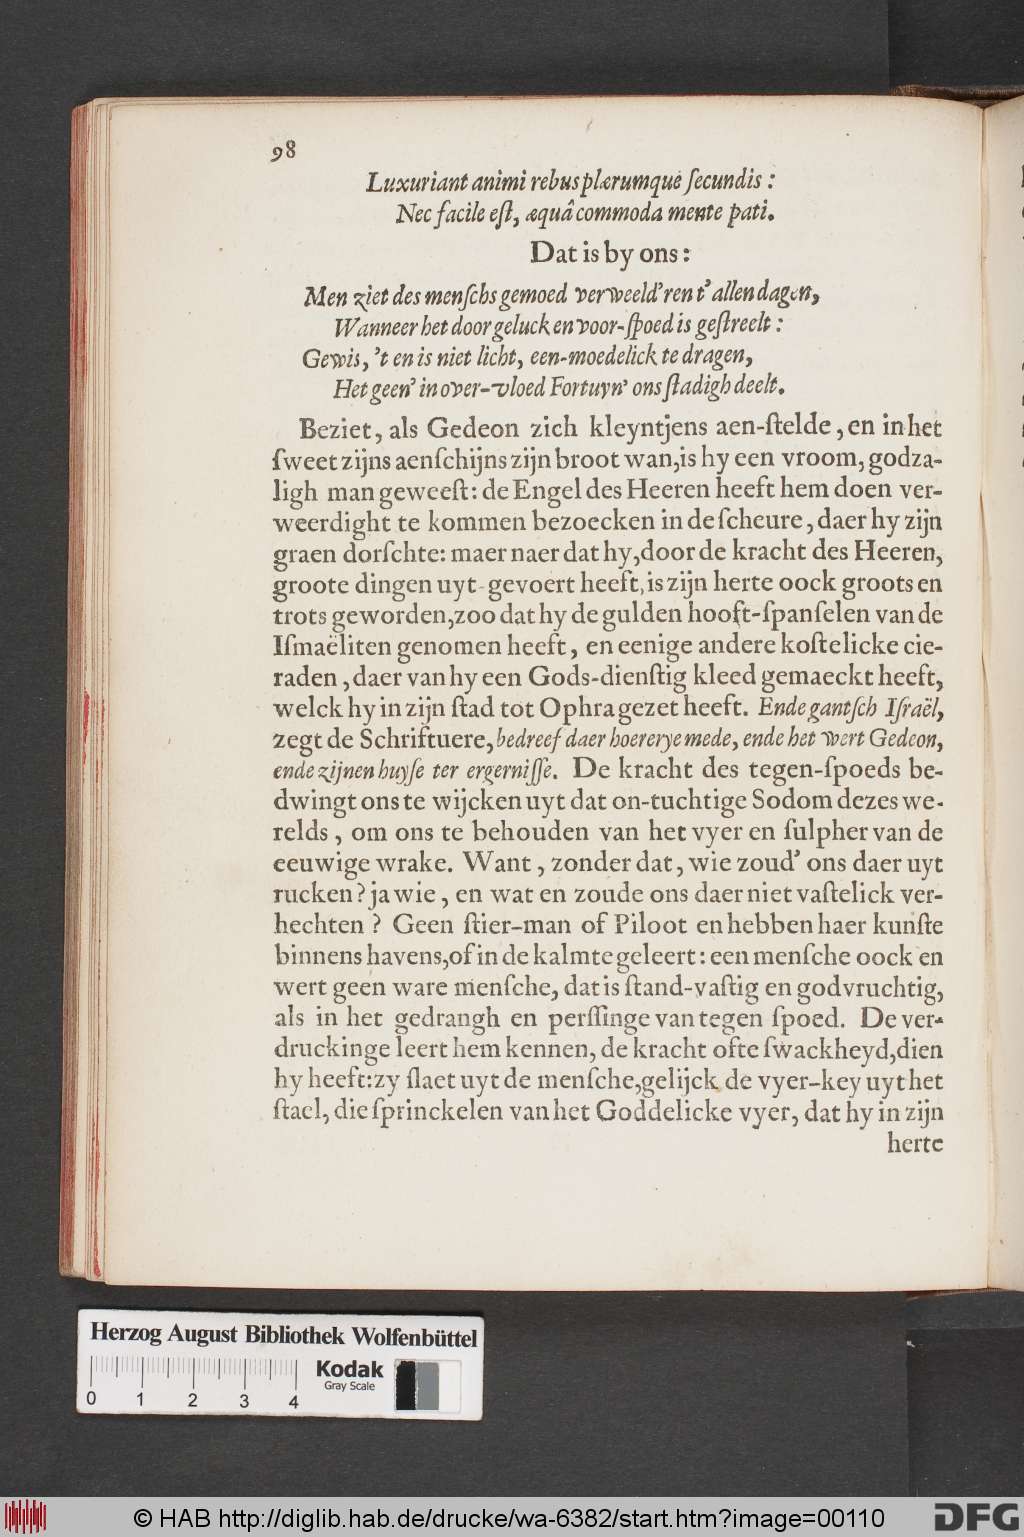 98
Luxuriant animi rebus plærumque ſecundis :
Nec facile eſt, æquâ commoda mente pati.
Dat is by ons :
Men ziet des menſchs gemoed verweeld'ren t' allen dagen,
Wanneer het door geluck en voor-ſpoed is geſtreelt :
Gewis, 't en is niet licht, een-moedelick te dragen,
Het geen' in over-vloed Fortuyn' ons ſtadigh deelt.
Beziet, als Gedeon zich kleyntjens aen-ſtelde, en in het
ſweet zijns aenſchijns zijn broot wan, is hy een vroom, godza-
ligh man geweeſt: de Engel des Heeren heeft hem doen ver-
weerdight te kommen bezoecken in de ſcheure, daer hy zijn
graen dorſchte: maer naer dat hy, door de kracht des Heeren,
groote dingen uyt-gevoert heeft, is zijn herte oock groots en
trots geworden, zoo dat hy de gulden hooft-ſpanſelen van de
Iſmaëliten genomen heeft, en eenige andere koſtelicke cie-
raden, daer van hy een Gods-dienſtig kleed gemaeckt heeft,
welck hy in zijn ſtad tot Ophra gezet heeft. Ende gantſch Iſraël,
zegt de Schriftuere, bedreef daer hoererye mede, ende het wert Gedeon,
ende zijnen huyſe ter ergerniſſe. De kracht des tegen-ſpoeds be-
dwingt ons te wijcken uyt dat on-tuchtige Sodom dezes we-
relds, om ons te behouden van het vyer en ſulpher van de
eeuwige wrake. Want, zonder dat, wie zoud' ons daer uyt
rucken? ja wie, en wat en zoude ons daer niet vaſtelick ver-
hechten? Geen ſtier-man of Piloot en hebben haer kunſte
binnens havens, of in de kalmte geleert: een menſche oock en
wert geen ware menſche, dat is ſtand-vaſtig en godvruchtig,
als in het gedrangh en perſſinge van tegen ſpoed. De ver-
druckinge leert hem kennen, de kracht ofte ſwackheyd, dien
hy heeft: zy ſlaet uyt de menſche, gelijck de vyer-key uyt het
ſtael, die ſprinckelen van het Goddelicke vyer, dat hy in zijn
herte
Herzog August Bibliothek Wolfenbüttel
Kodak
Gray Scale
0 1 2 3 4
© HAB http://diglib.hab.de/drucke/wa-6382/start.htm?image=00110
DFG